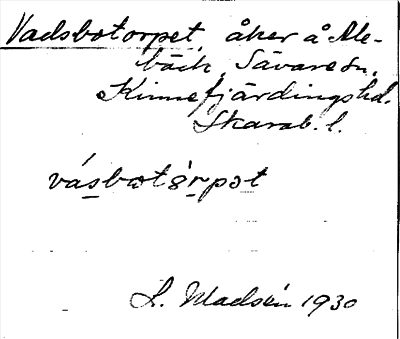 Vadsbotorpet åker å Ale-
bäck, Sävare sn.
Kinnefjärdings hd.
Skarab. l.
vásbotòrpət
L. Madsén 1930